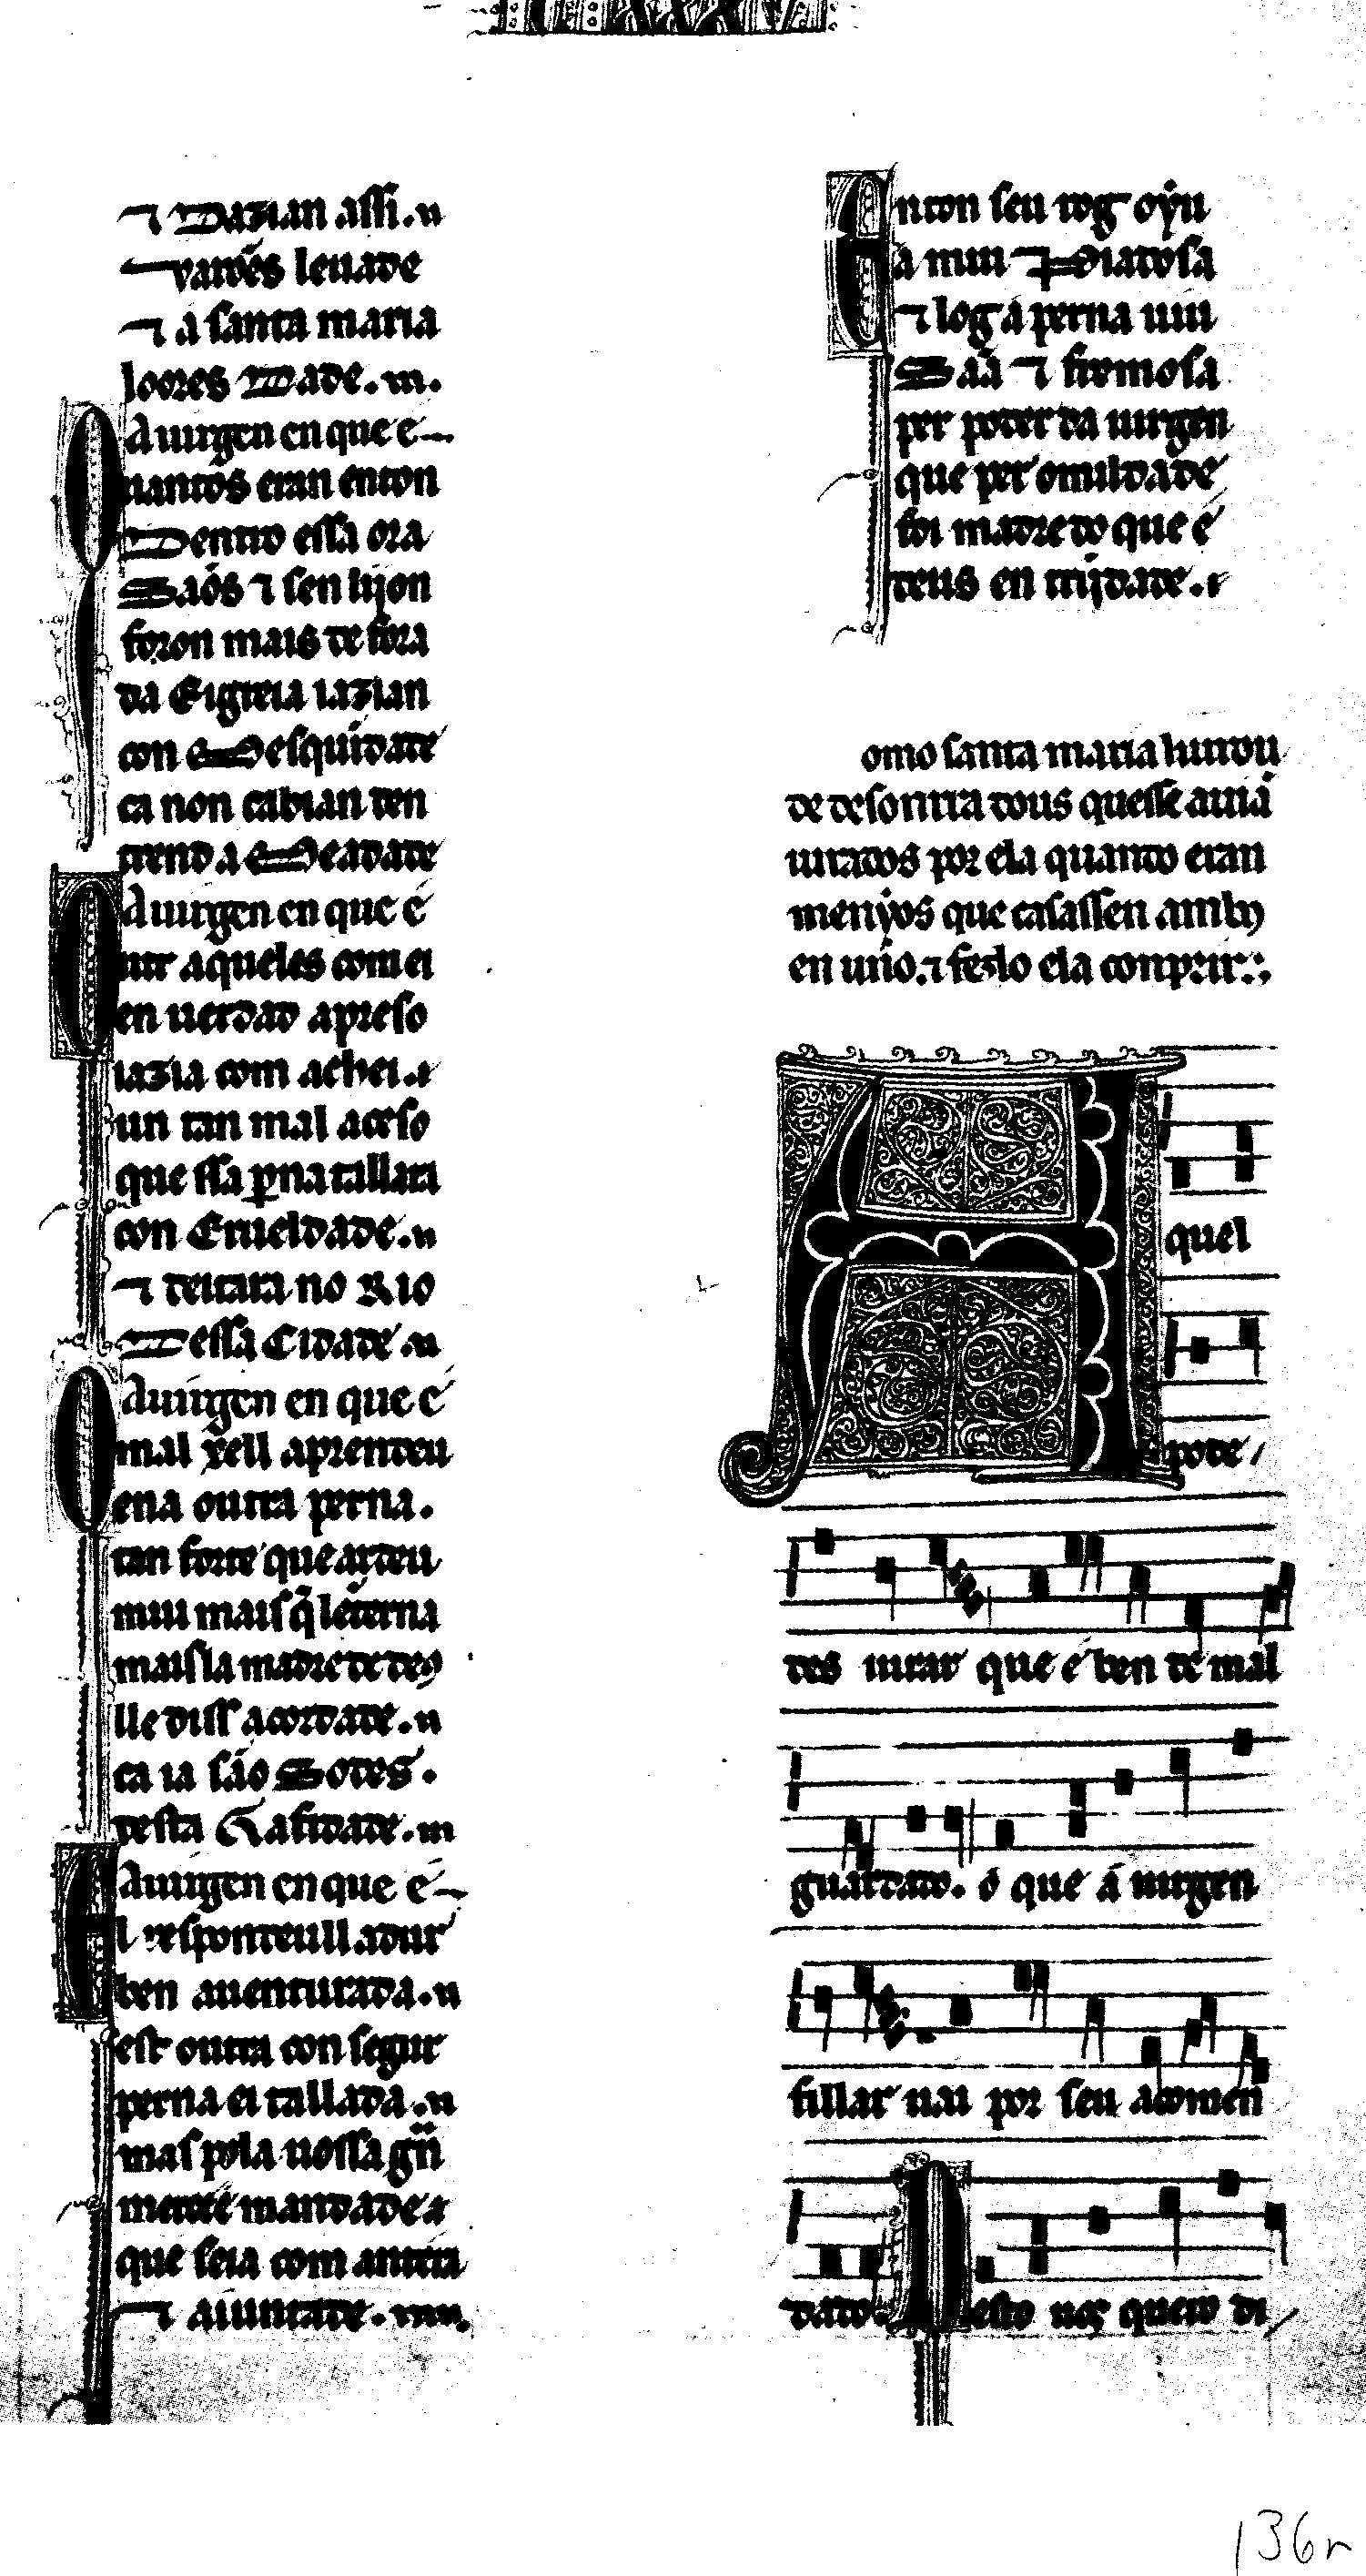 ⁊ Dizian assi. u
varões leuade
⁊ a santa maria
loores Dade. m.
A uirgen en que e
Quantos eran enton
Dentro essa ora
Sãos ⁊ sen lijon
foron mais de fora
da Eigreia iazian
con Mesquidade
ca non cabian ten
tend a Meadade
A uirgen en que é
Ontr aqueles com ei
en uerdad apreso
iazia com achei. ı
un tan mal aceso
que ssa p̱na tallara
con Crueldade. u
⁊ deitara no Rio
Dessa Cidade. u
A uirgen en que é
O mal xell aprendeu
ena outra perna.
tan forte que ardeu
mui mais q̃ lẽterna
mais la madre de de9
lle diss acordade. u
ca ia são Sodes.
desta Gafidade. m
A uirgen en que é
El respondeull adur
ben auenturada. u
est outra con segur
perna ei tallada. u
mas pola uossa gñ
mercee mandade ı
que seia com antiia
⁊ aiuntade. mu.
Enton seu rog oyu
a mui Piadosa
⁊ log á perna uiu
Sãa ⁊ fremosa
per poder da uirgen
que per omildade
foi madre do que é
deus en trijdade. ı
omo santa maria liurou
de desonrra dous quesse auiã
iurados por ela quando eran
menỹos que casassen amb9
en uũo. ⁊ fezlo ela conprir:;
Aquel
pode
des iurar que é ben de mal
guardado. ó que á uirgen
fillar uai por seu acomen
dado. Desto uos quero di
136r